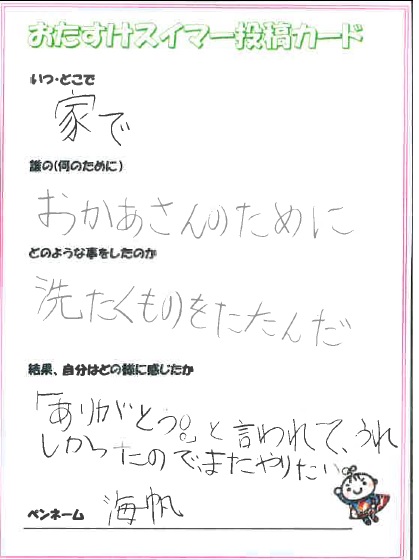 おたすけスイマー投稿カード
いつ・どこで
家で
誰の(何のために)
おかあさんのために
どのような事をしたのか
洗たくものをたたんだ
結果、自分はどの様に感じたか
「ありがとう。」と言われて、うれ
しかったので、またやりたい。
ペンネーム 海帆